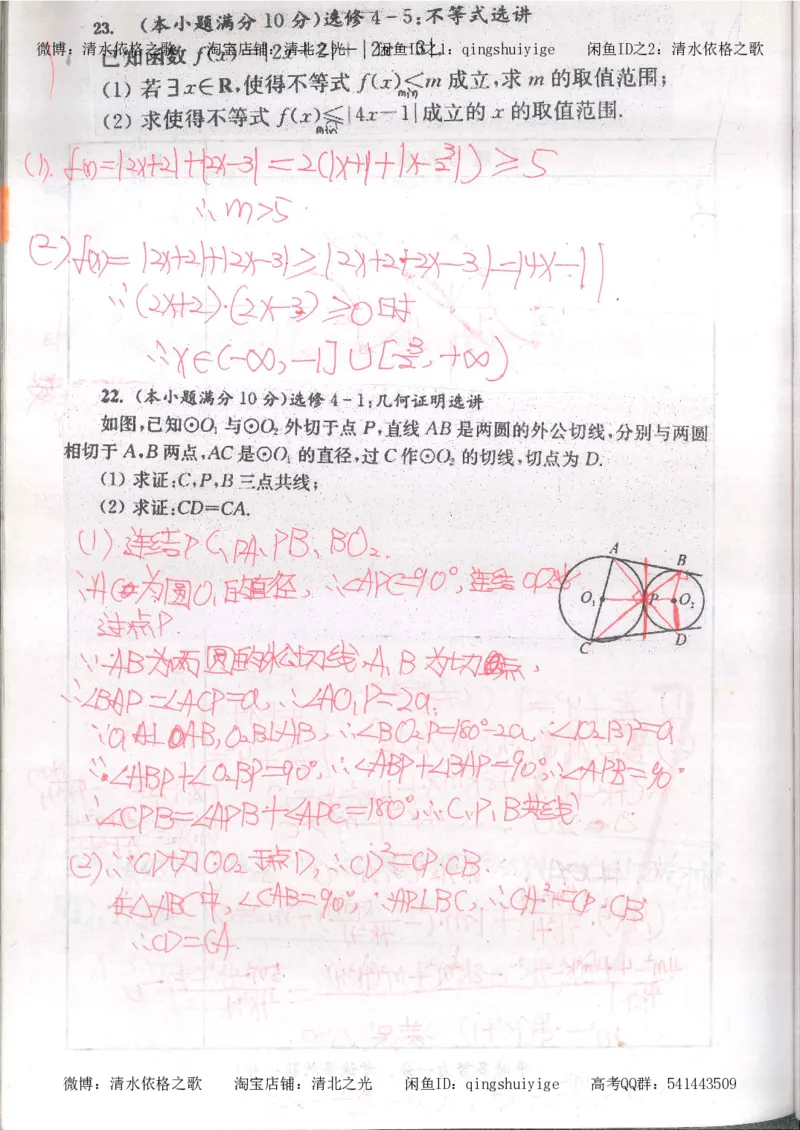 23. (本小题满分10分)选修4-5:不等式选讲
微博:清水依格之歌 淘宝店铺:清北之光 闲鱼ID之1:qingshuiyige 闲鱼ID之2:清水依格之歌
已知函数f(x)=|2x+2|+|2x-3|.
(1) 若∃x∈R,使得不等式f(x)<m成立,求m的取值范围;
min
(2) 求使得不等式f(x)≤|4x-1|成立的x的取值范围.
min
(1). f(x)=|2x+2|+|2x-3|=2(|x+1|+|x-3/2|)≥5
∴m>5.
(2).f(x)=|2x+2|+|2x-3|≥|2x+2+2x-3|=|4x-1|
∵(2x+2)·(2x-3)≥0时
∴x∈(-∞,-1]∪[3/2,+∞)
22. (本小题满分10分)选修4-1:几何证明选讲
如图,已知⊙O₁与⊙O₂外切于点P,直线AB是两圆的外公切线,分别与两圆
相切于A,B两点,AC是⊙O₁的直径,过C作⊙O₂的切线,切点为D.
(1) 求证:C,P,B三点共线;
(2) 求证:CD=CA.
(1) 连结PC、PA、PB、BO₂.
∵AC为圆O₁的直径,∴∠APC=90°,连结O₁O₂必
过点P.
∵AB为两圆的外公切线,A、B为切点,
∴∠BAP=∠ACP=a,∴∠AO₁P=2a.
∵O₁A⊥AB,O₂B⊥AB,∴∠BO₂P=180°-2a,∴∠O₂BP=a
∵∠ABP+∠O₂BP=90°,∴∠ABP+∠BAP=90°,∴∠APB=90°
∴∠CPB=∠APB+∠APC=180°,∴C,P,B共线
(2).∵CD切⊙O₂于点D,∴CD²=CP·CB.
在△ABC中,∠CAB=90°,∵AP⊥BC,∴CA²=CP·CB
∴CD=CA.
A
B
O₁
P
O₂
C
D
微博:清水依格之歌 淘宝店铺:清北之光 闲鱼ID:qingshuiyige 高考QQ群:541443509